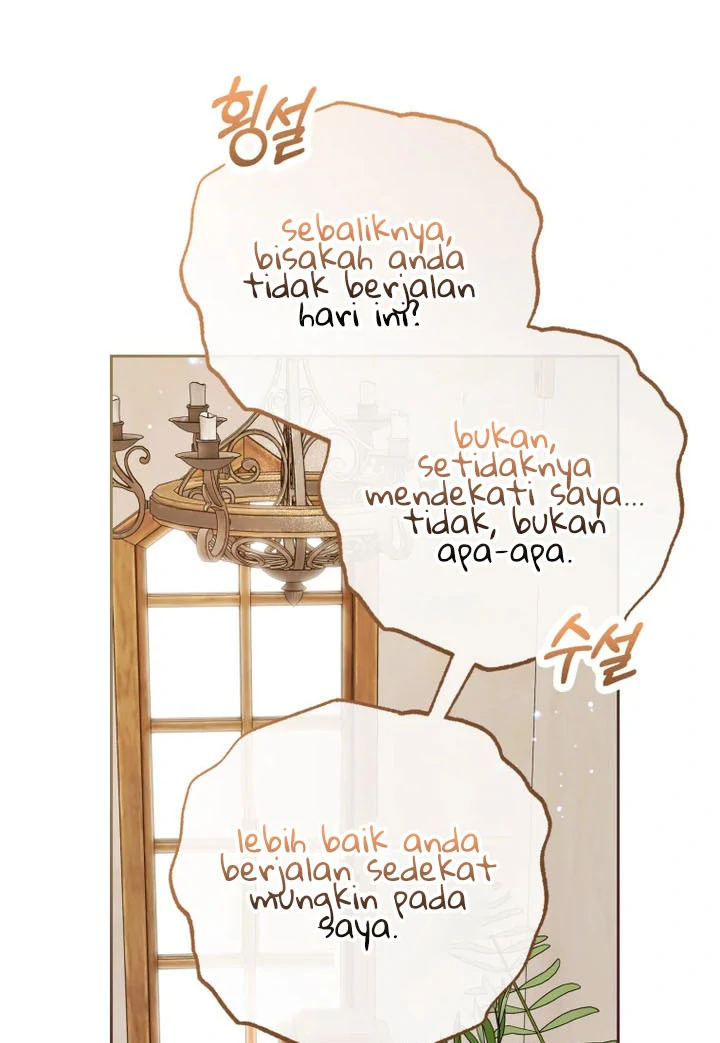 횡설
sebaliknya,
bisakah anda
tidak berjalan
hari ini?
bukan,
setidaknya
mendekati saya...
tidak, bukan
apa-apa.
수설
lebih baik anda
berjalan sedekat
mungkin pada
saya.